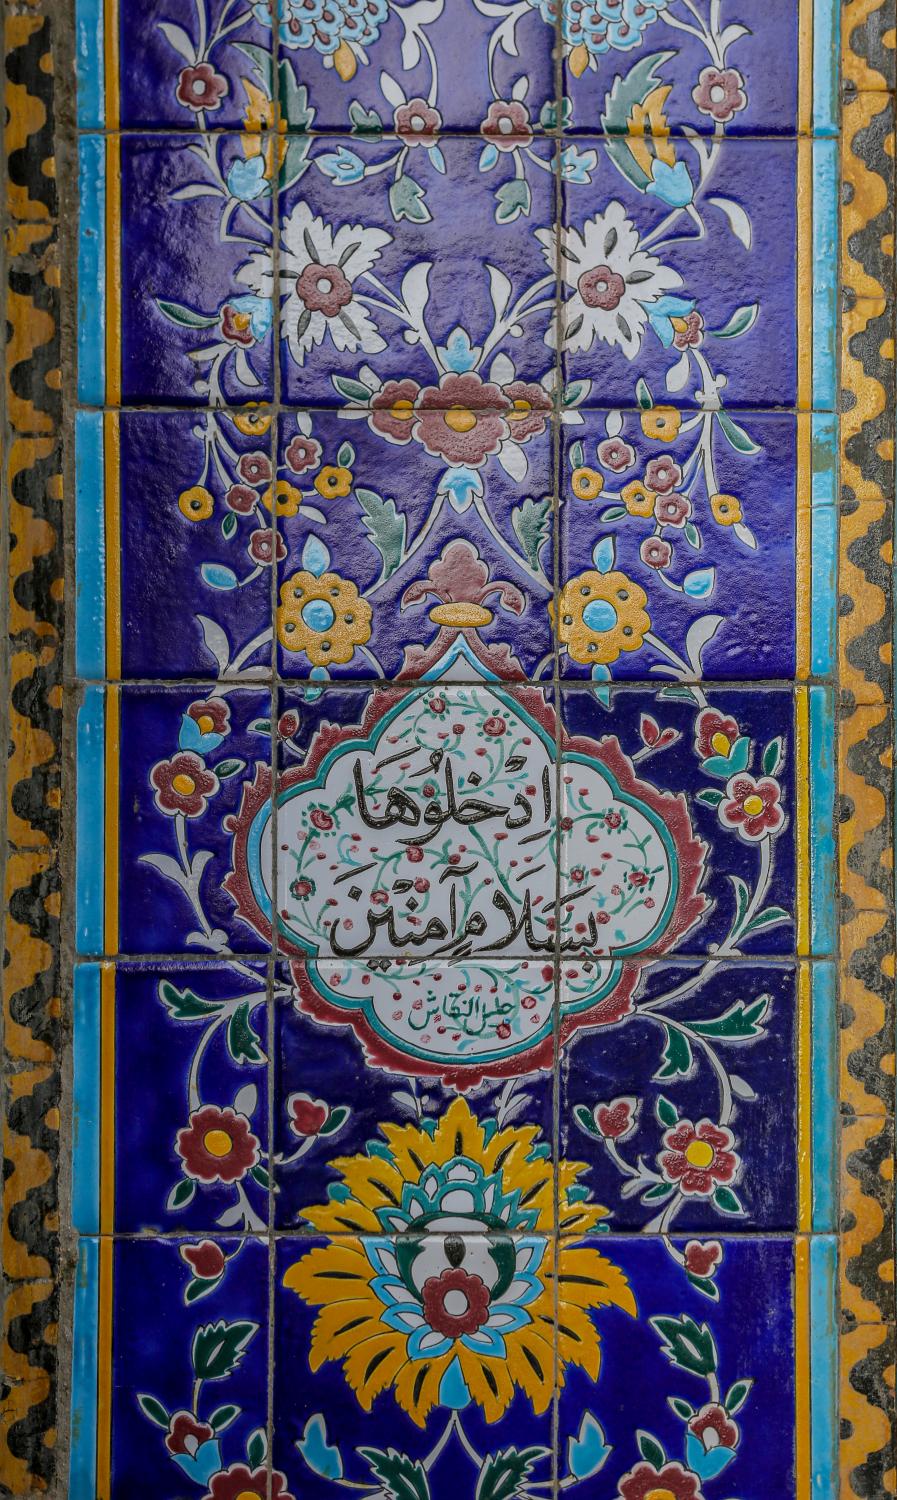 اِدْخُلُوهَا
بِسَلَامٍ آمَنْیِنَ
النقاش